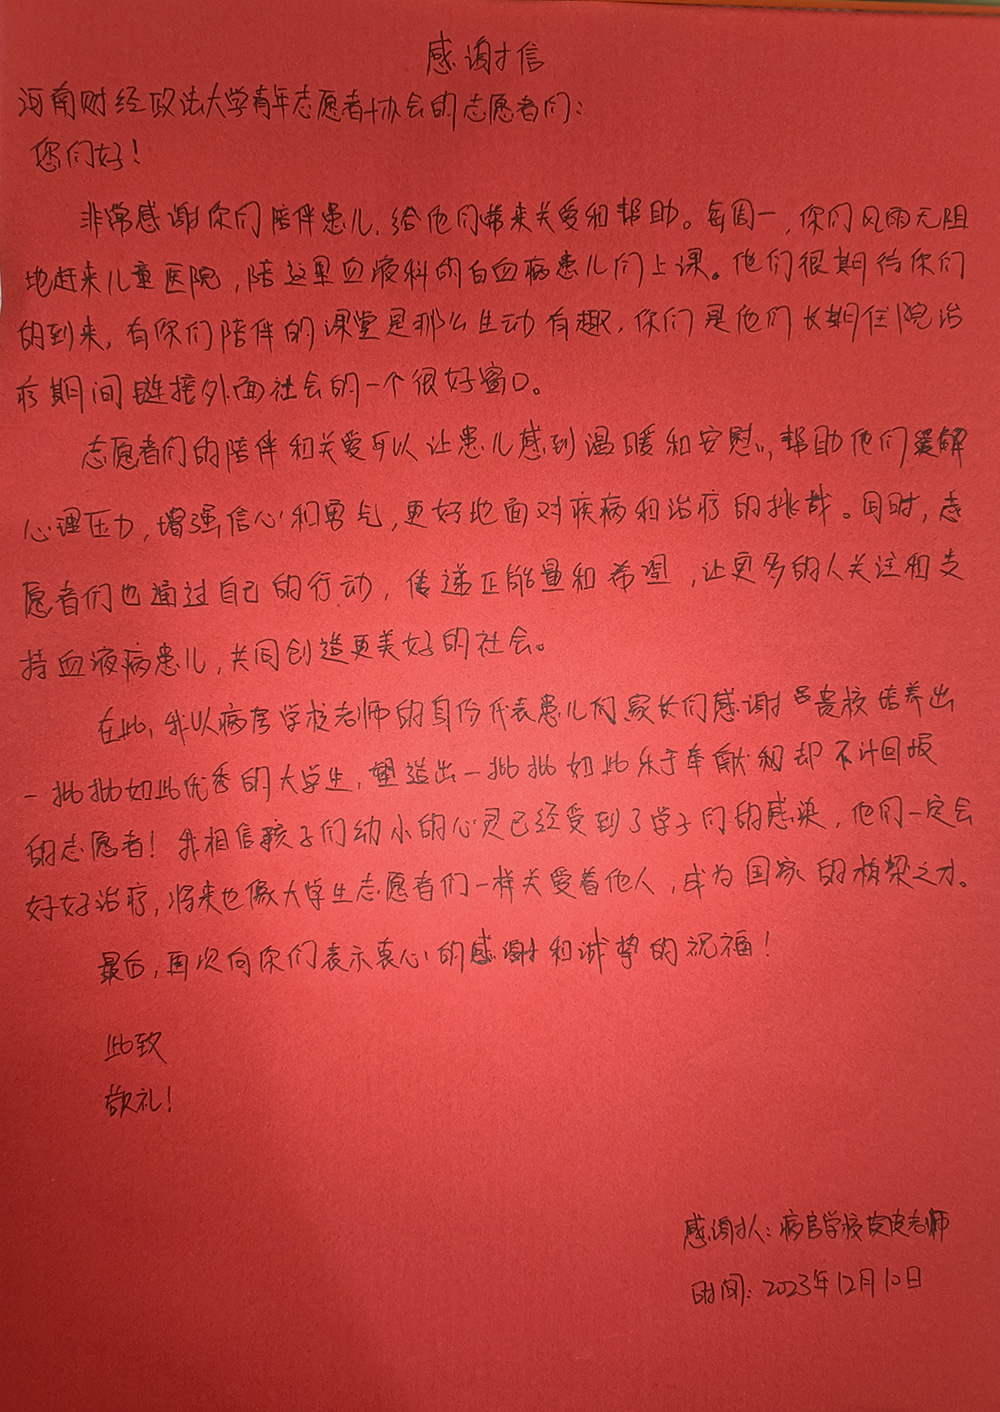 感谢信
河南财经政法大学青年志愿者协会的志愿者们：
您们好！
非常感谢你们陪伴患儿，给他们带来关爱和帮助。每周一，你们风雨无阻
地赶来儿童医院，陪这里血液科的白血病患儿们上课。他们很期待你们
的到来，有你们陪伴的课堂是那么生动有趣，你们是他们长期住院治
疗期间链接外面社会的一个很好窗口。
志愿者们的陪伴和关爱可以让患儿感到温暖和安慰，帮助他们缓解
心理压力，增强信心和勇气，更好地面对疾病和治疗的挑战。同时，志
愿者们也通过自己的行动，传递正能量和希望，让更多的人关注和支
持血液病患儿，共同创造更美好的社会。
在此，我以病房学校老师的身份代表患儿的家长们感谢贵校培养出
一批批如此优秀的大学生，塑造出一批批如此乐于奉献和却不计回报
的志愿者！我相信孩子们幼小的心灵已经受到了学子们的感染，他们一定会
好好治疗，将来也像大学生志愿者们一样关爱着他人，成为国家的栋梁之才。
最后，再次向你们表示衷心的感谢和诚挚的祝福！
此致
敬礼！
感谢人：病房学校皮皮老师
时间：2023年12月10日